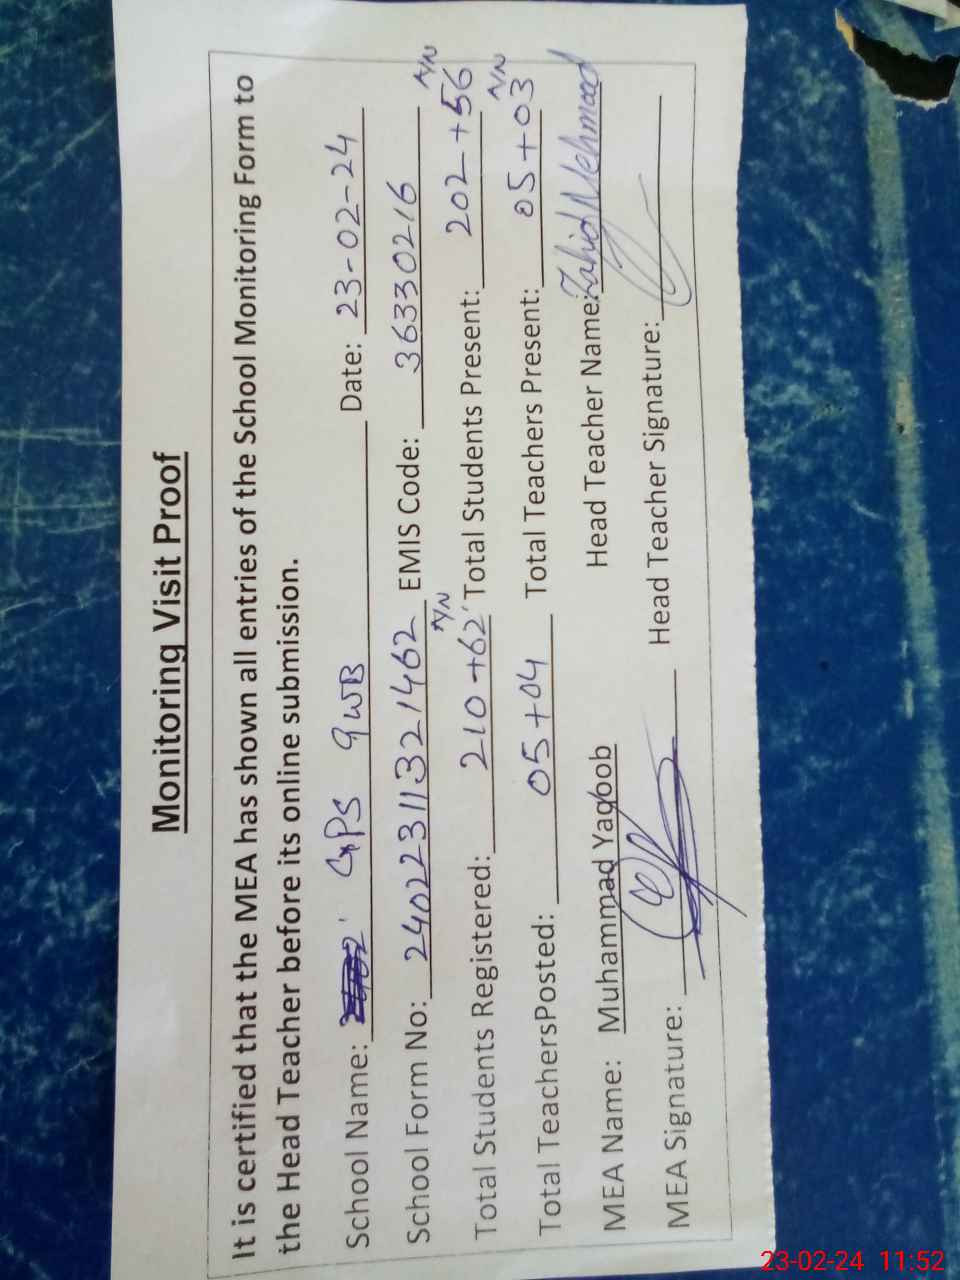 Monitoring Visit Proof
It is certified that the MEA has shown all entries of the School Monitoring Form to
the Head Teacher before its online submission.
School Name: GPS 9WB Date: 23-02-24
School Form No: 24022311321462 EMIS Code: 36330216
Total Students Registered: 210+62 A/N Total Students Present: 202+56 A/N
Total TeachersPosted: 05+04 Total Teachers Present: 05+03 A/N
MEA Name: Muhammad Yaqoob Head Teacher Name: Zahid Mehmood
MEA Signature: Head Teacher Signature:
23-02-24 11:52